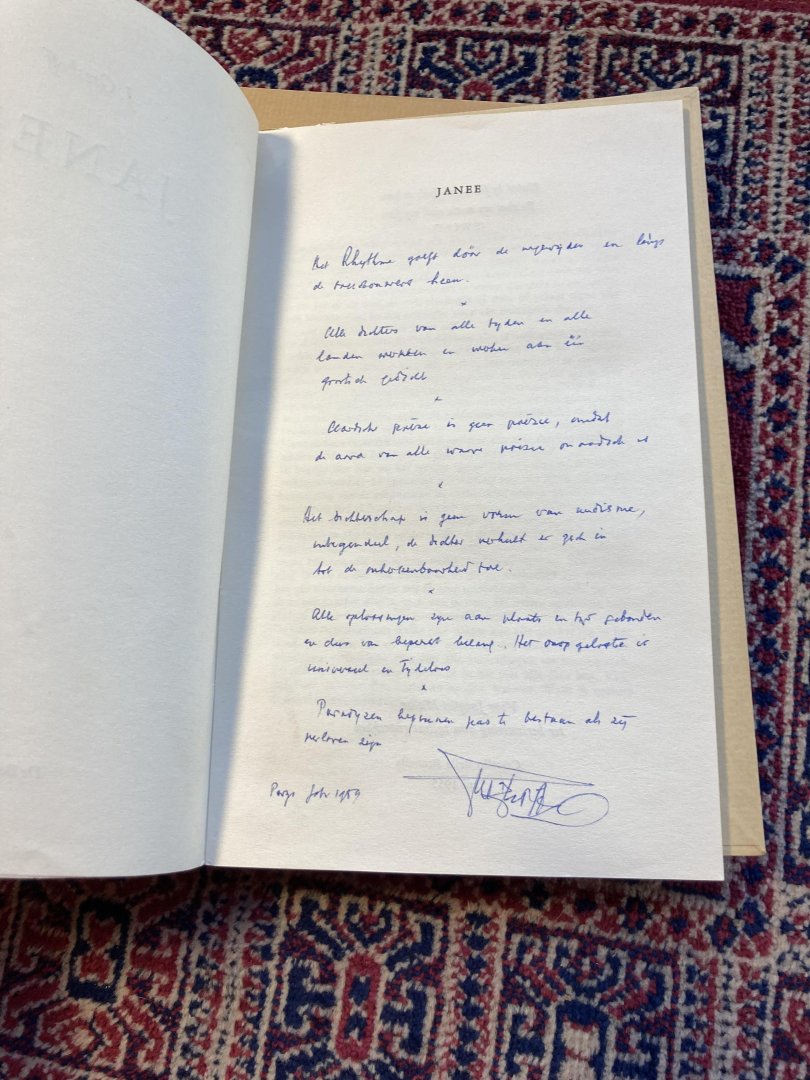 JANEE
Het Rhythme golft dóór de ingewijden en làngs
de buitenwereld heen.
*
Alle dichters van alle tyden en alle
landen werken en weven aan één
grootsch gedicht
*
Aardsche poëzie is geen poëzie, omdat
de aard van alle ware poëzie onaardsch is
*
Het dichterschap is geen vorm van nudisme,
integendeel, de dichter verhult er zich in
tot de onherkenbaarheid toe.
*
Alle oplossingen zyn aan plaats en tyd gebonden
en dus van beperkt belang. Het onopgeloste is
universeel en Tydeloos
*
Paradyzen beginnen pas te bestaan als zij
verloren zijn
Parys Febr 1959
JANE